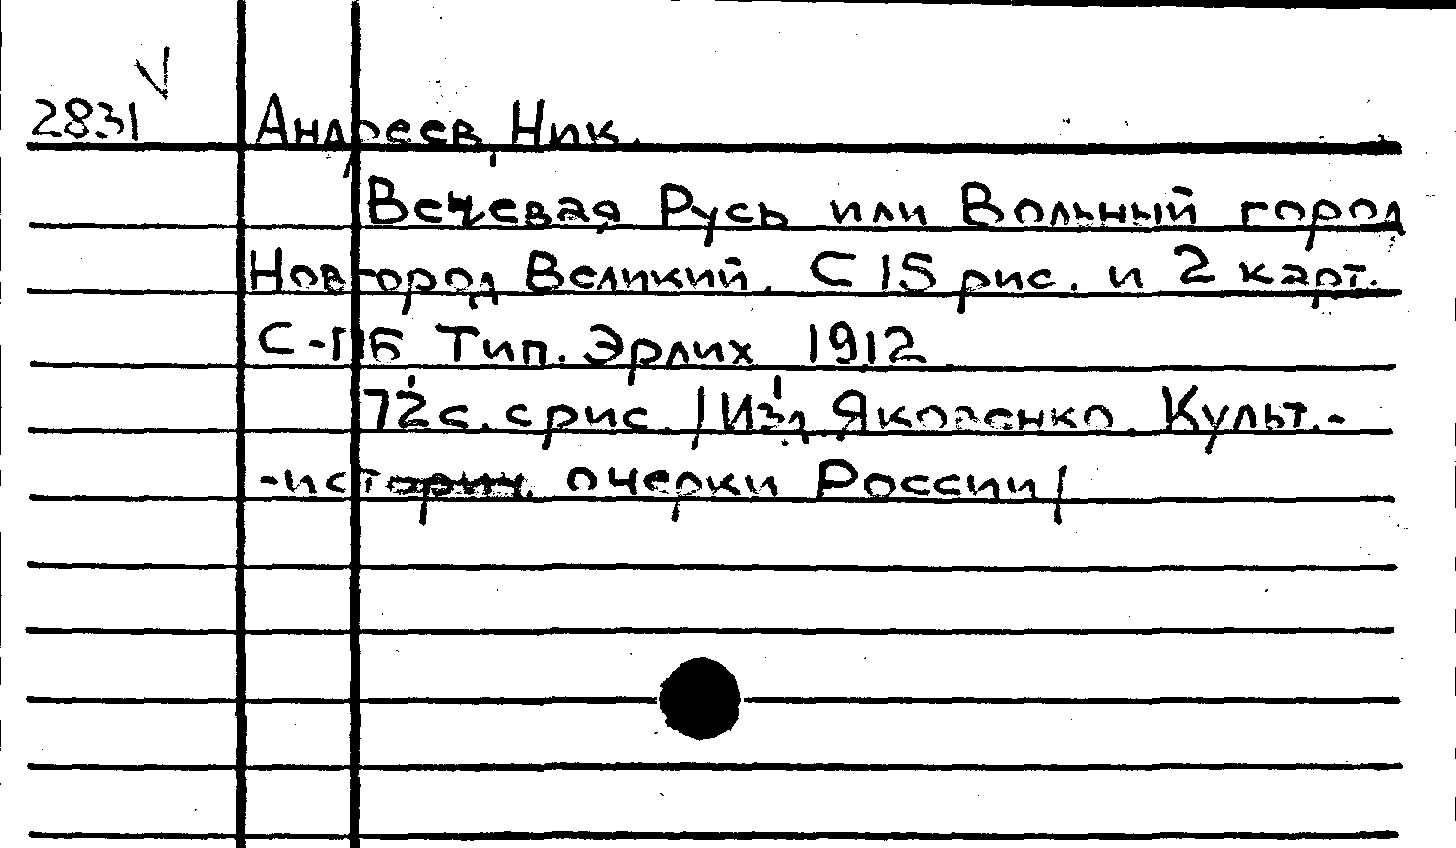 2831 Андреев, Ник.
Вечевая Русь или Вольный город
Новгород Великий. С 15 рис. и 2 карт.
С-ПБ Тип. Эрлих 1912
72 с. с рис. /Изд. Яковенко. Культ.-
-историч. очерки России/